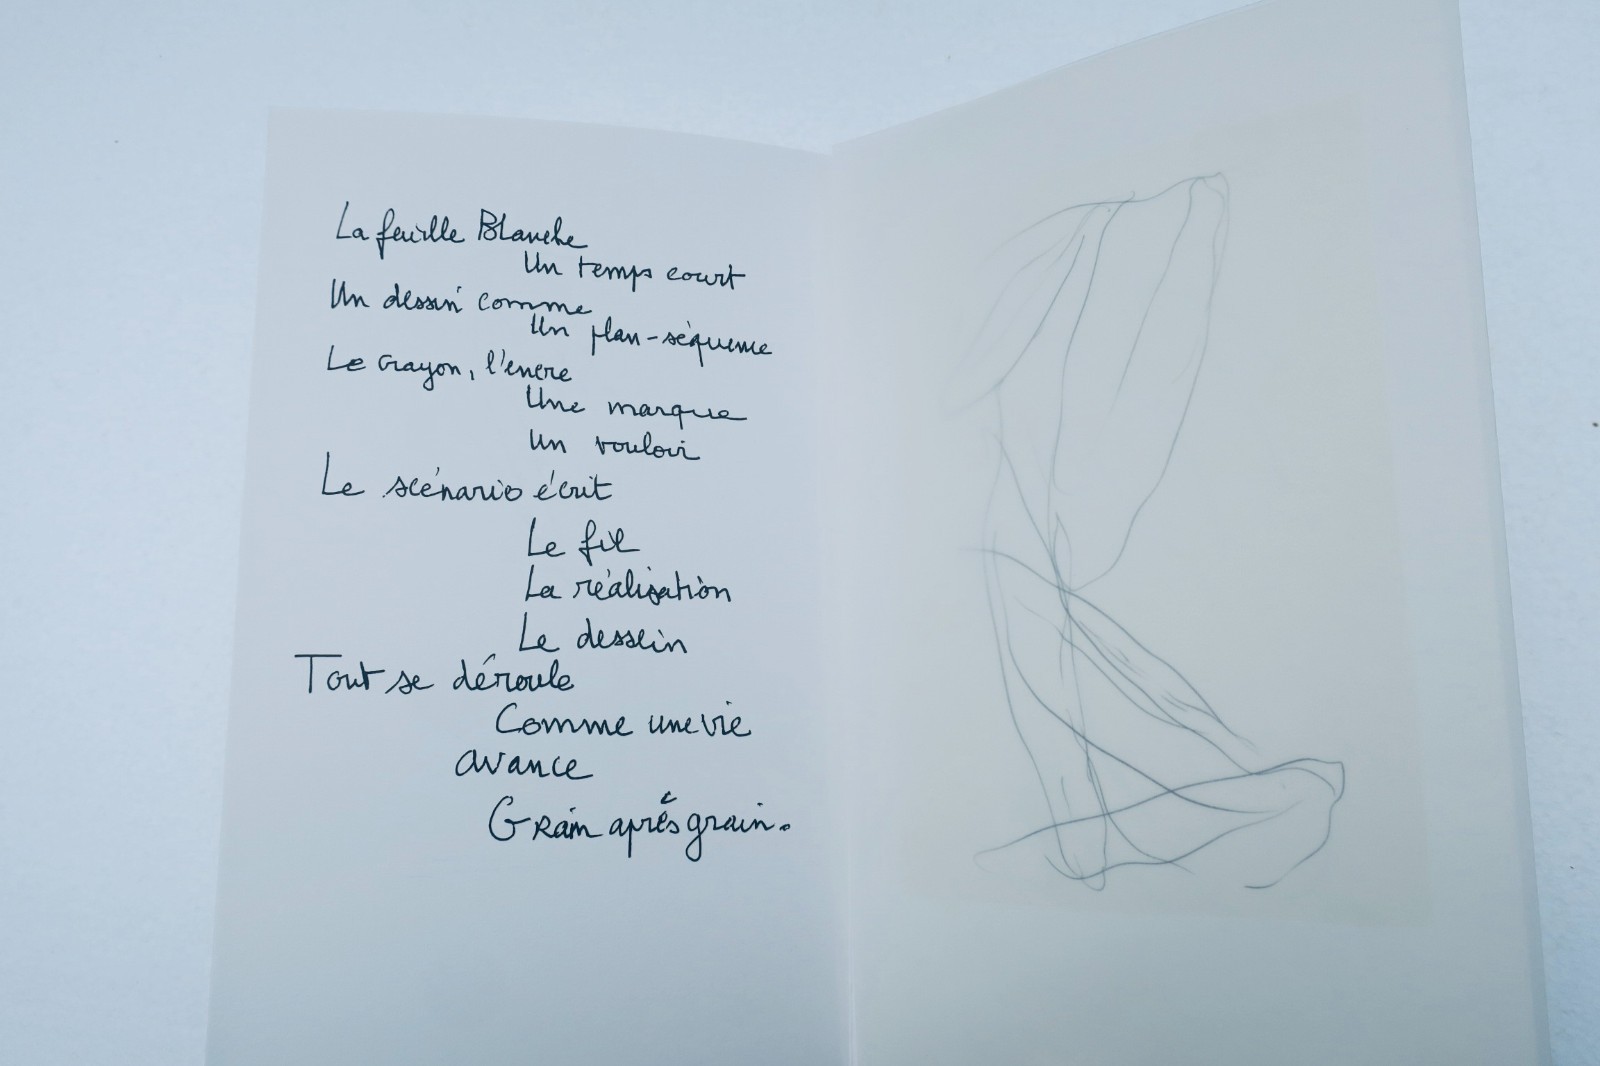 La feuille Blanche
Un temps court
Un dessin comme
Un plan-séquence
Le crayon, l'encre
Une marque
Un vouloir
Le scénario écrit
Le fil
La réalisation
Le dessein
Tout se déroule
Comme une vie
avance
Grain après grain.